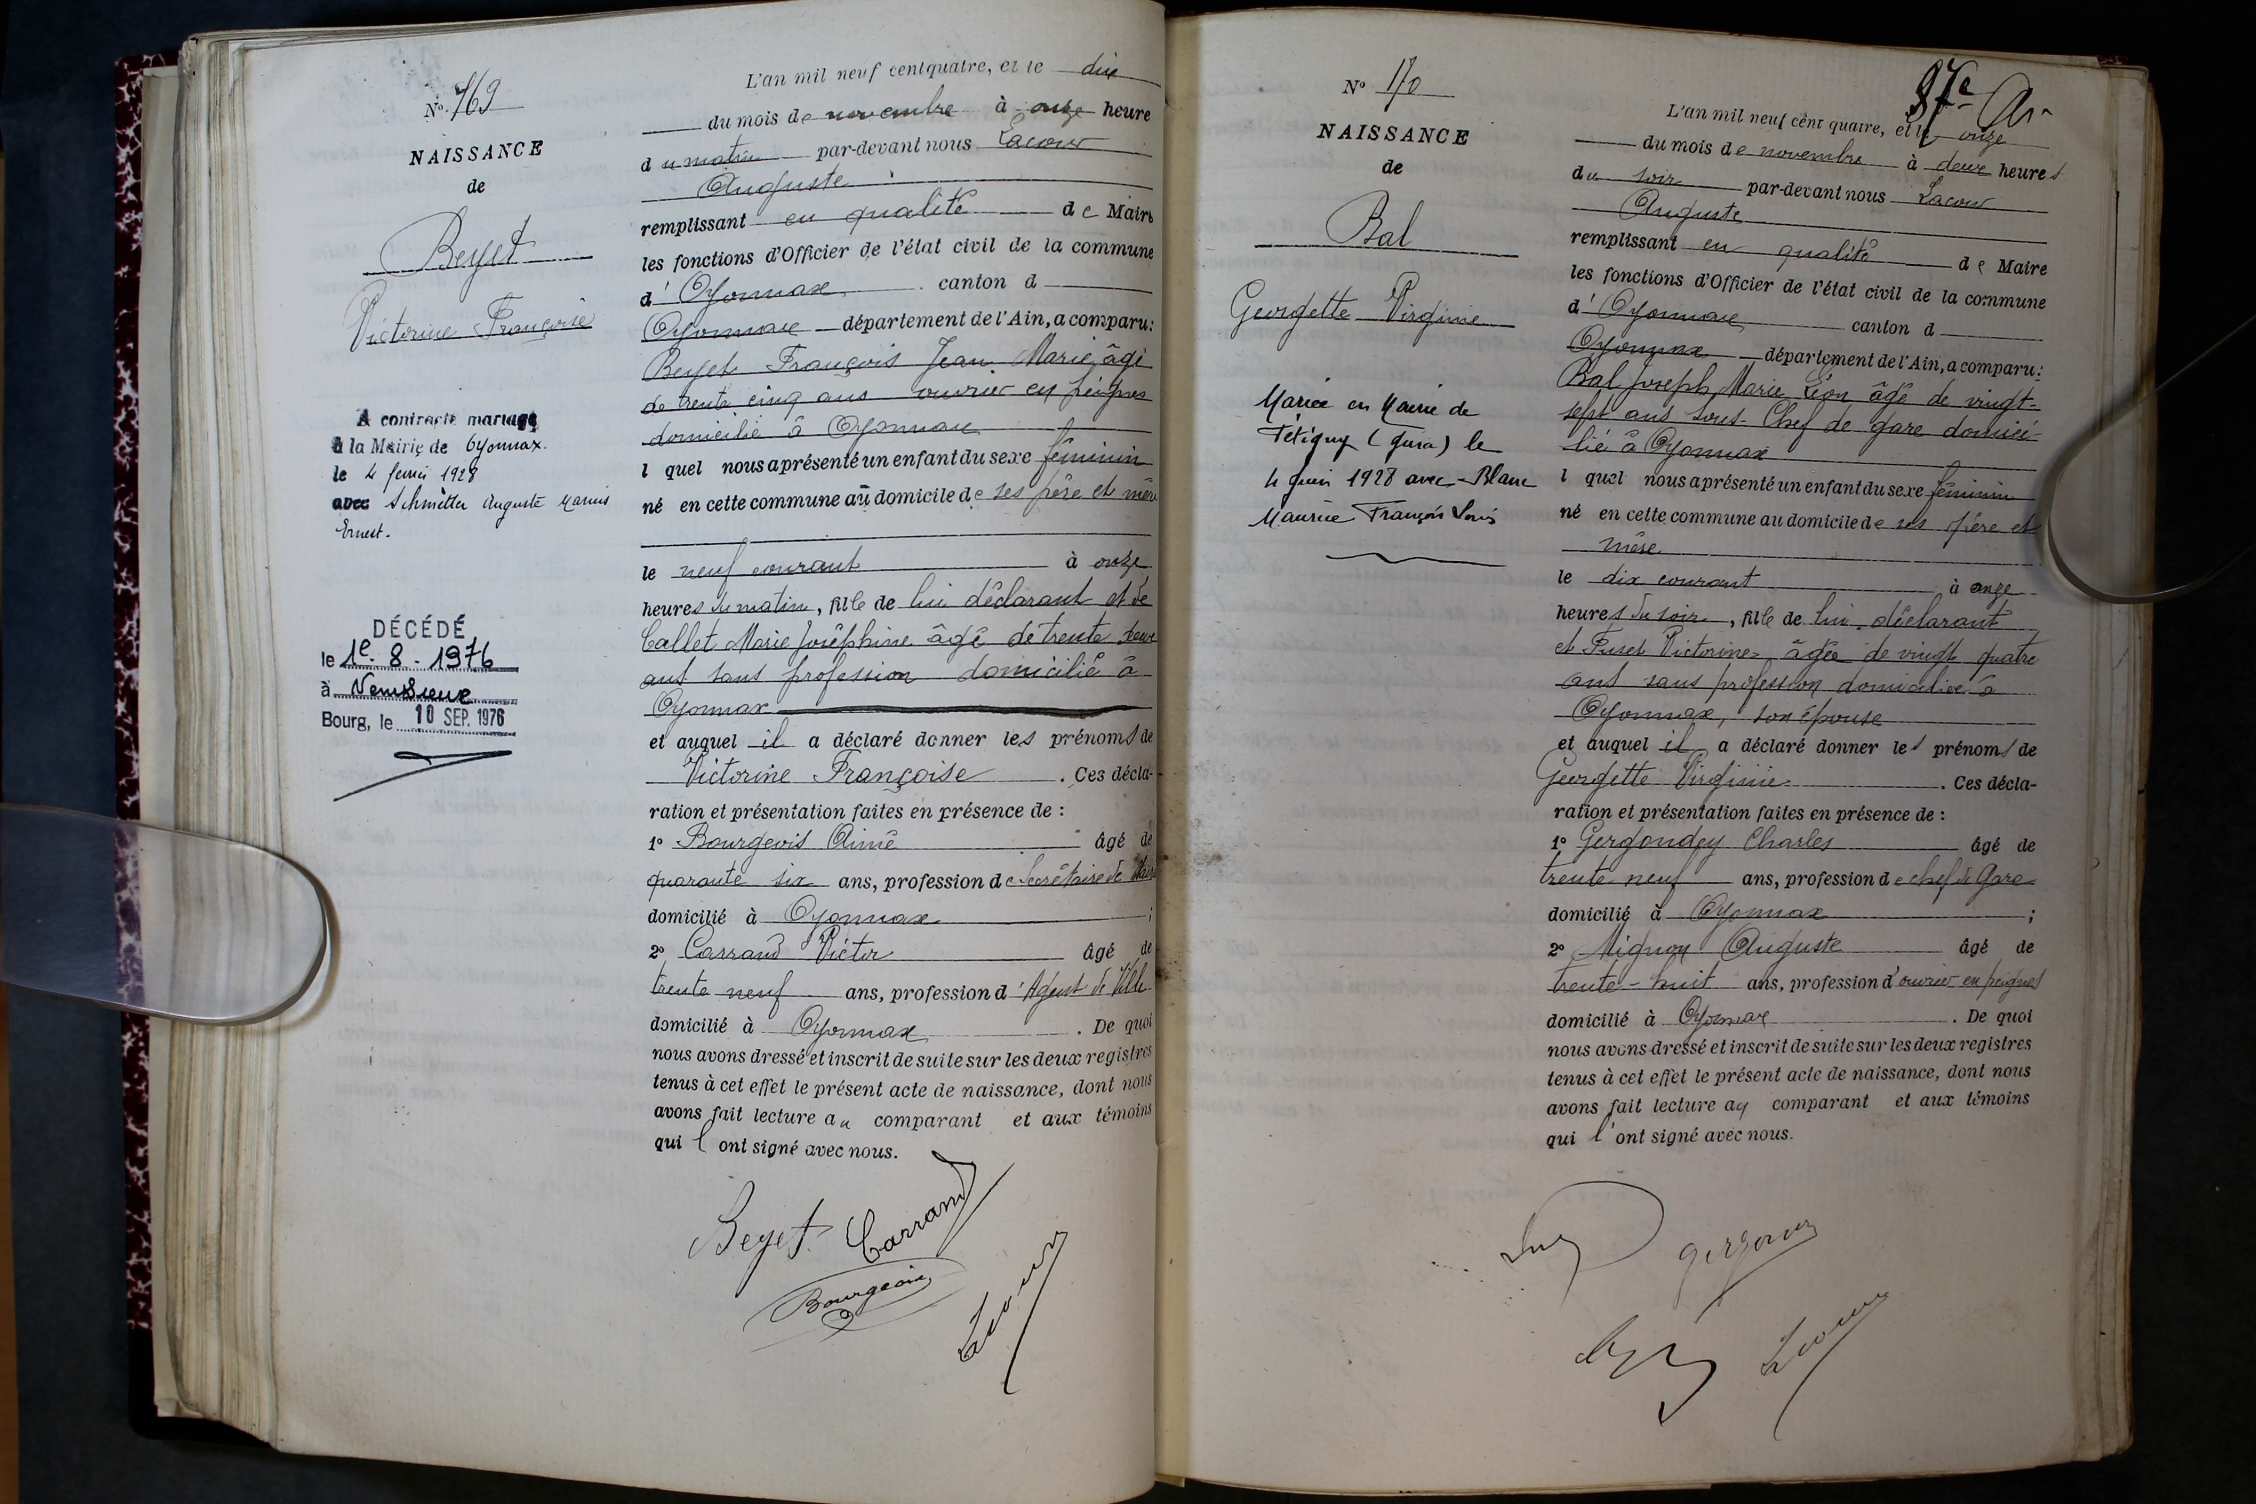 N° 169
NAISSANCE
de
Beyet
Victorine Françoise
A contracté mariage
à la Mairie de Oyonnax.
le 4 février 1928
avec Schmitter Auguste Marius
Ernest.
DÉCÉDÉ
le 1e. 8. 1976
à Venissieux
Bourg, le 10 SEP. 1976
L'an mil neuf cent quatre, et le dix
du mois de novembre à onze heure
du matin par-devant nous Lacour
Auguste
remplissant en qualité de Maire
les fonctions d'Officier de l'état civil de la commune
d' Oyonnax canton d
Oyonnax département de l'Ain, a comparu:
Beyet François Jean Marie, âgé
de trente cinq ans ouvrier en peignes
domicilié à Oyonnax
l quel nous a présenté un enfant du sexe féminin
né en cette commune au domicile de ses père et mère
le neuf courant à onze
heures du matin, fille de lui déclarant et de
Callet Marie Joséphine âgé de trente deux
ans sans profession domicilié à
Oyonnax
et auquel il a déclaré donner les prénoms de
Victorine Françoise. Ces décla-
ration et présentation faites en présence de :
1° Bourgeois Aimé âgé de
quarante six ans, profession de Secrétaire de Mairie
domicilié à Oyonnax ;
2° Carrand Victor âgé de
trente neuf ans, profession d'Agent de Ville
domicilié à Oyonnax. De quoi
nous avons dressé et inscrit de suite sur les deux registres
tenus à cet effet le présent acte de naissance, dont nous
avons fait lecture au comparant et aux témoins
qui l'ont signé avec nous.
Beyet Carrand
Bourgeois
Lacour
N° 170
NAISSANCE
de
Bal
Georgette Virginie
Mariée en Mairie de
Pétigny (Jura) le
4 juin 1928 avec Blanc
Maurice François Louis
97e
L'an mil neuf cent quatre, et le onze
du mois de novembre à deux heures
du soir par-devant nous Lacour
Auguste
remplissant en qualité de Maire
les fonctions d'Officier de l'état civil de la commune
d' Oyonnax canton d
Oyonnax département de l'Ain, a comparu:
Bal Joseph Marie Léon âgé de vingt-
sept ans sous-Chef de gare domici-
lié à Oyonnax
l quel nous a présenté un enfant du sexe féminin
né en cette commune au domicile de ses père et
mère
le dix courant à onze
heures du soir, fille de lui déclarant
et Fuset Victorine âgée de vingt quatre
ans sans profession domiciliée à
Oyonnax, son épouse
et auquel il a déclaré donner les prénoms de
Georgette Virginie. Ces décla-
ration et présentation faites en présence de :
1° Gergondey Charles âgé de
trente neuf ans, profession de chef de Gare
domicilié à Oyonnax ;
2° Mignon Auguste âgé de
trente-huit ans, profession d'ouvrier en peignes
domicilié à Oyonnax. De quoi
nous avons dressé et inscrit de suite sur les deux registres
tenus à cet effet le présent acte de naissance, dont nous
avons fait lecture au comparant et aux témoins
qui l'ont signé avec nous.
Lacour